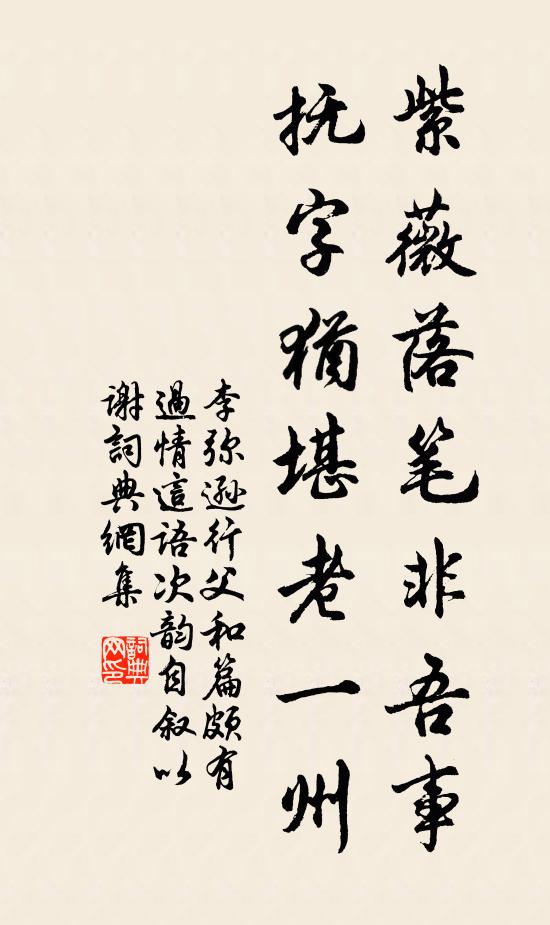 紫薇落笔非吾事
抚字犹堪老一州
李弥逊行父和篇颇有
過情這語次韵自叙以
谢詞典網集
詞典网印